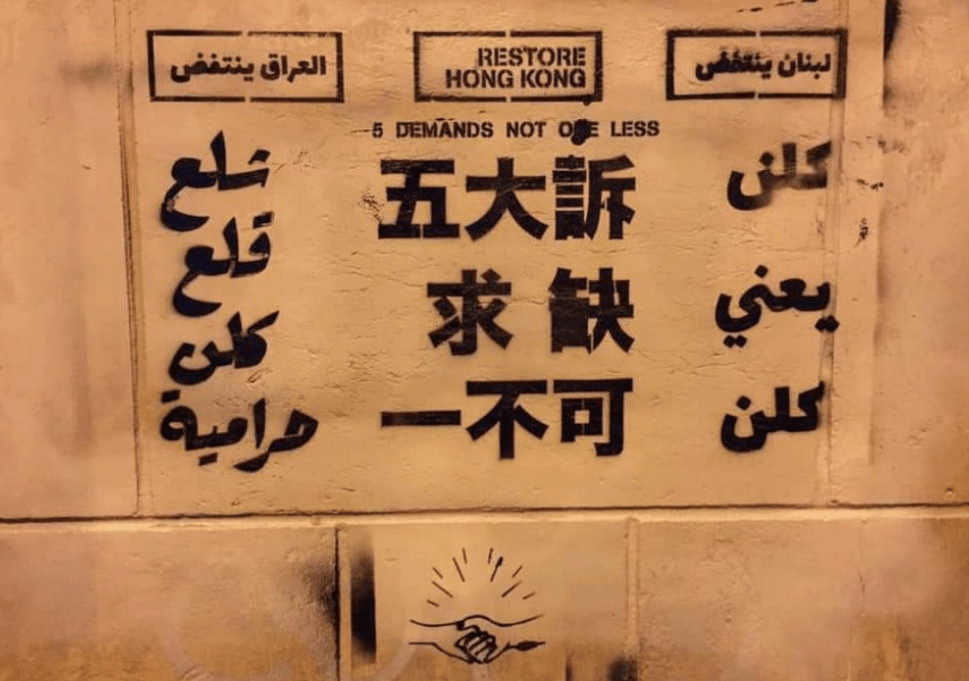 العراق ينتفض
شلع
قلع
كلن
حرامية
RESTORE
HONG KONG
5 DEMANDS NOT ONE LESS
五大訴
求 缺
一不可
لبنان ينتفض
كلن
يعني
كلن